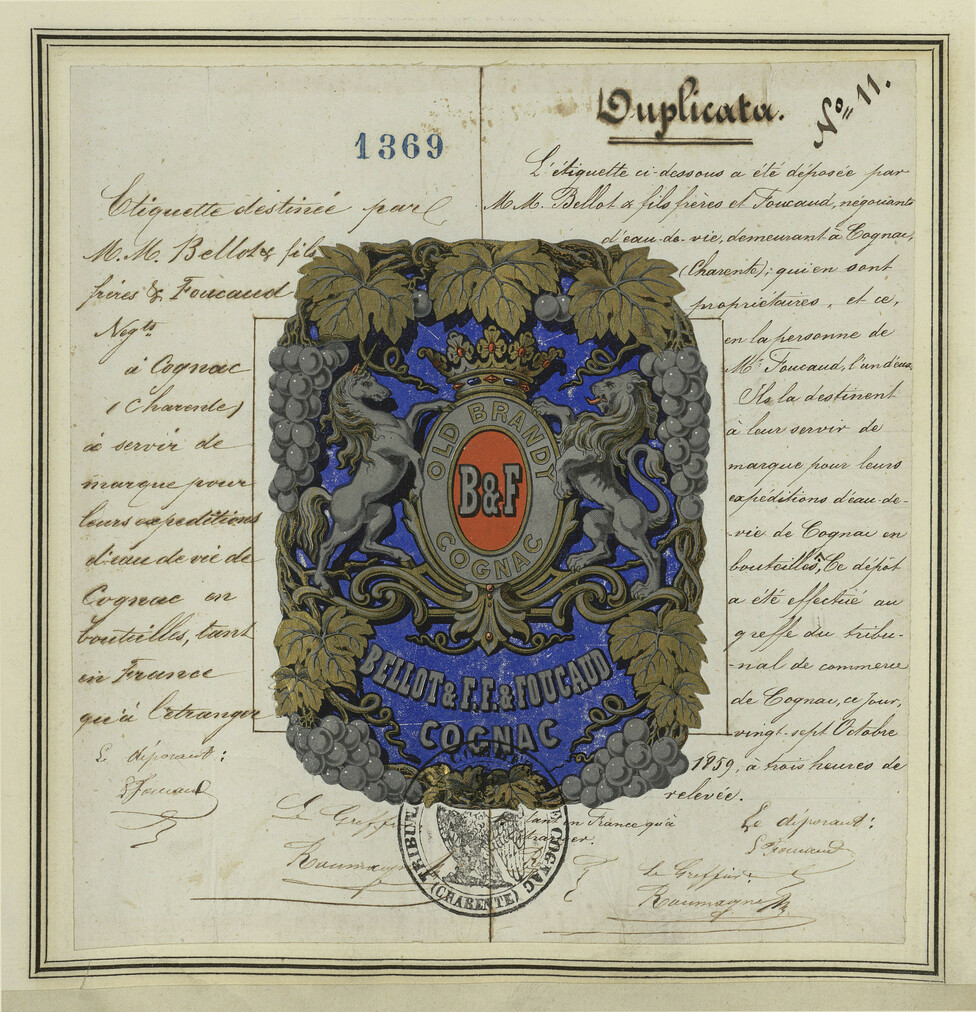 1369
Etiquette destinée par
M.M. Bellot & fils
frères & Foucaud
Negts
à Cognac
(Charente)
à servir de
marque pour
leurs expéditions
d'eau de vie de
Cognac en
bouteilles, tant
en France
qu'à l'étranger
Le déposant:
Foucaud
Le Greffier
Raumagne
Duplicata.
No 11.
L'étiquette ci-dessous a été déposée par
M.M. Bellot & fils frères et Foucaud, négociants
d'eau-de-vie, demeurant à Cognac,
(Charente); qui en sont
propriétaires, et ce,
en la personne de
Mr Foucaud, l'un d'eux.
Ils la destinent
à leur servir de
marque pour leurs
expéditions d'eau-de-
-vie de Cognac en
bouteilles, Ce dépôt
a été effectué au
greffe du tribu-
-nal de commerce
de Cognac, ce jour,
vingt-sept Octobre
1859, à trois heures de
relevée.
tant en France qu'à
Le déposant:
Foucaud
Le Greffier:
Raumagne
OLD BRANDY
B&F
COGNAC
BELLOT & F.F. & FOUCAUD
COGNAC
TRIBUT COGNAC
(CHARENTE)